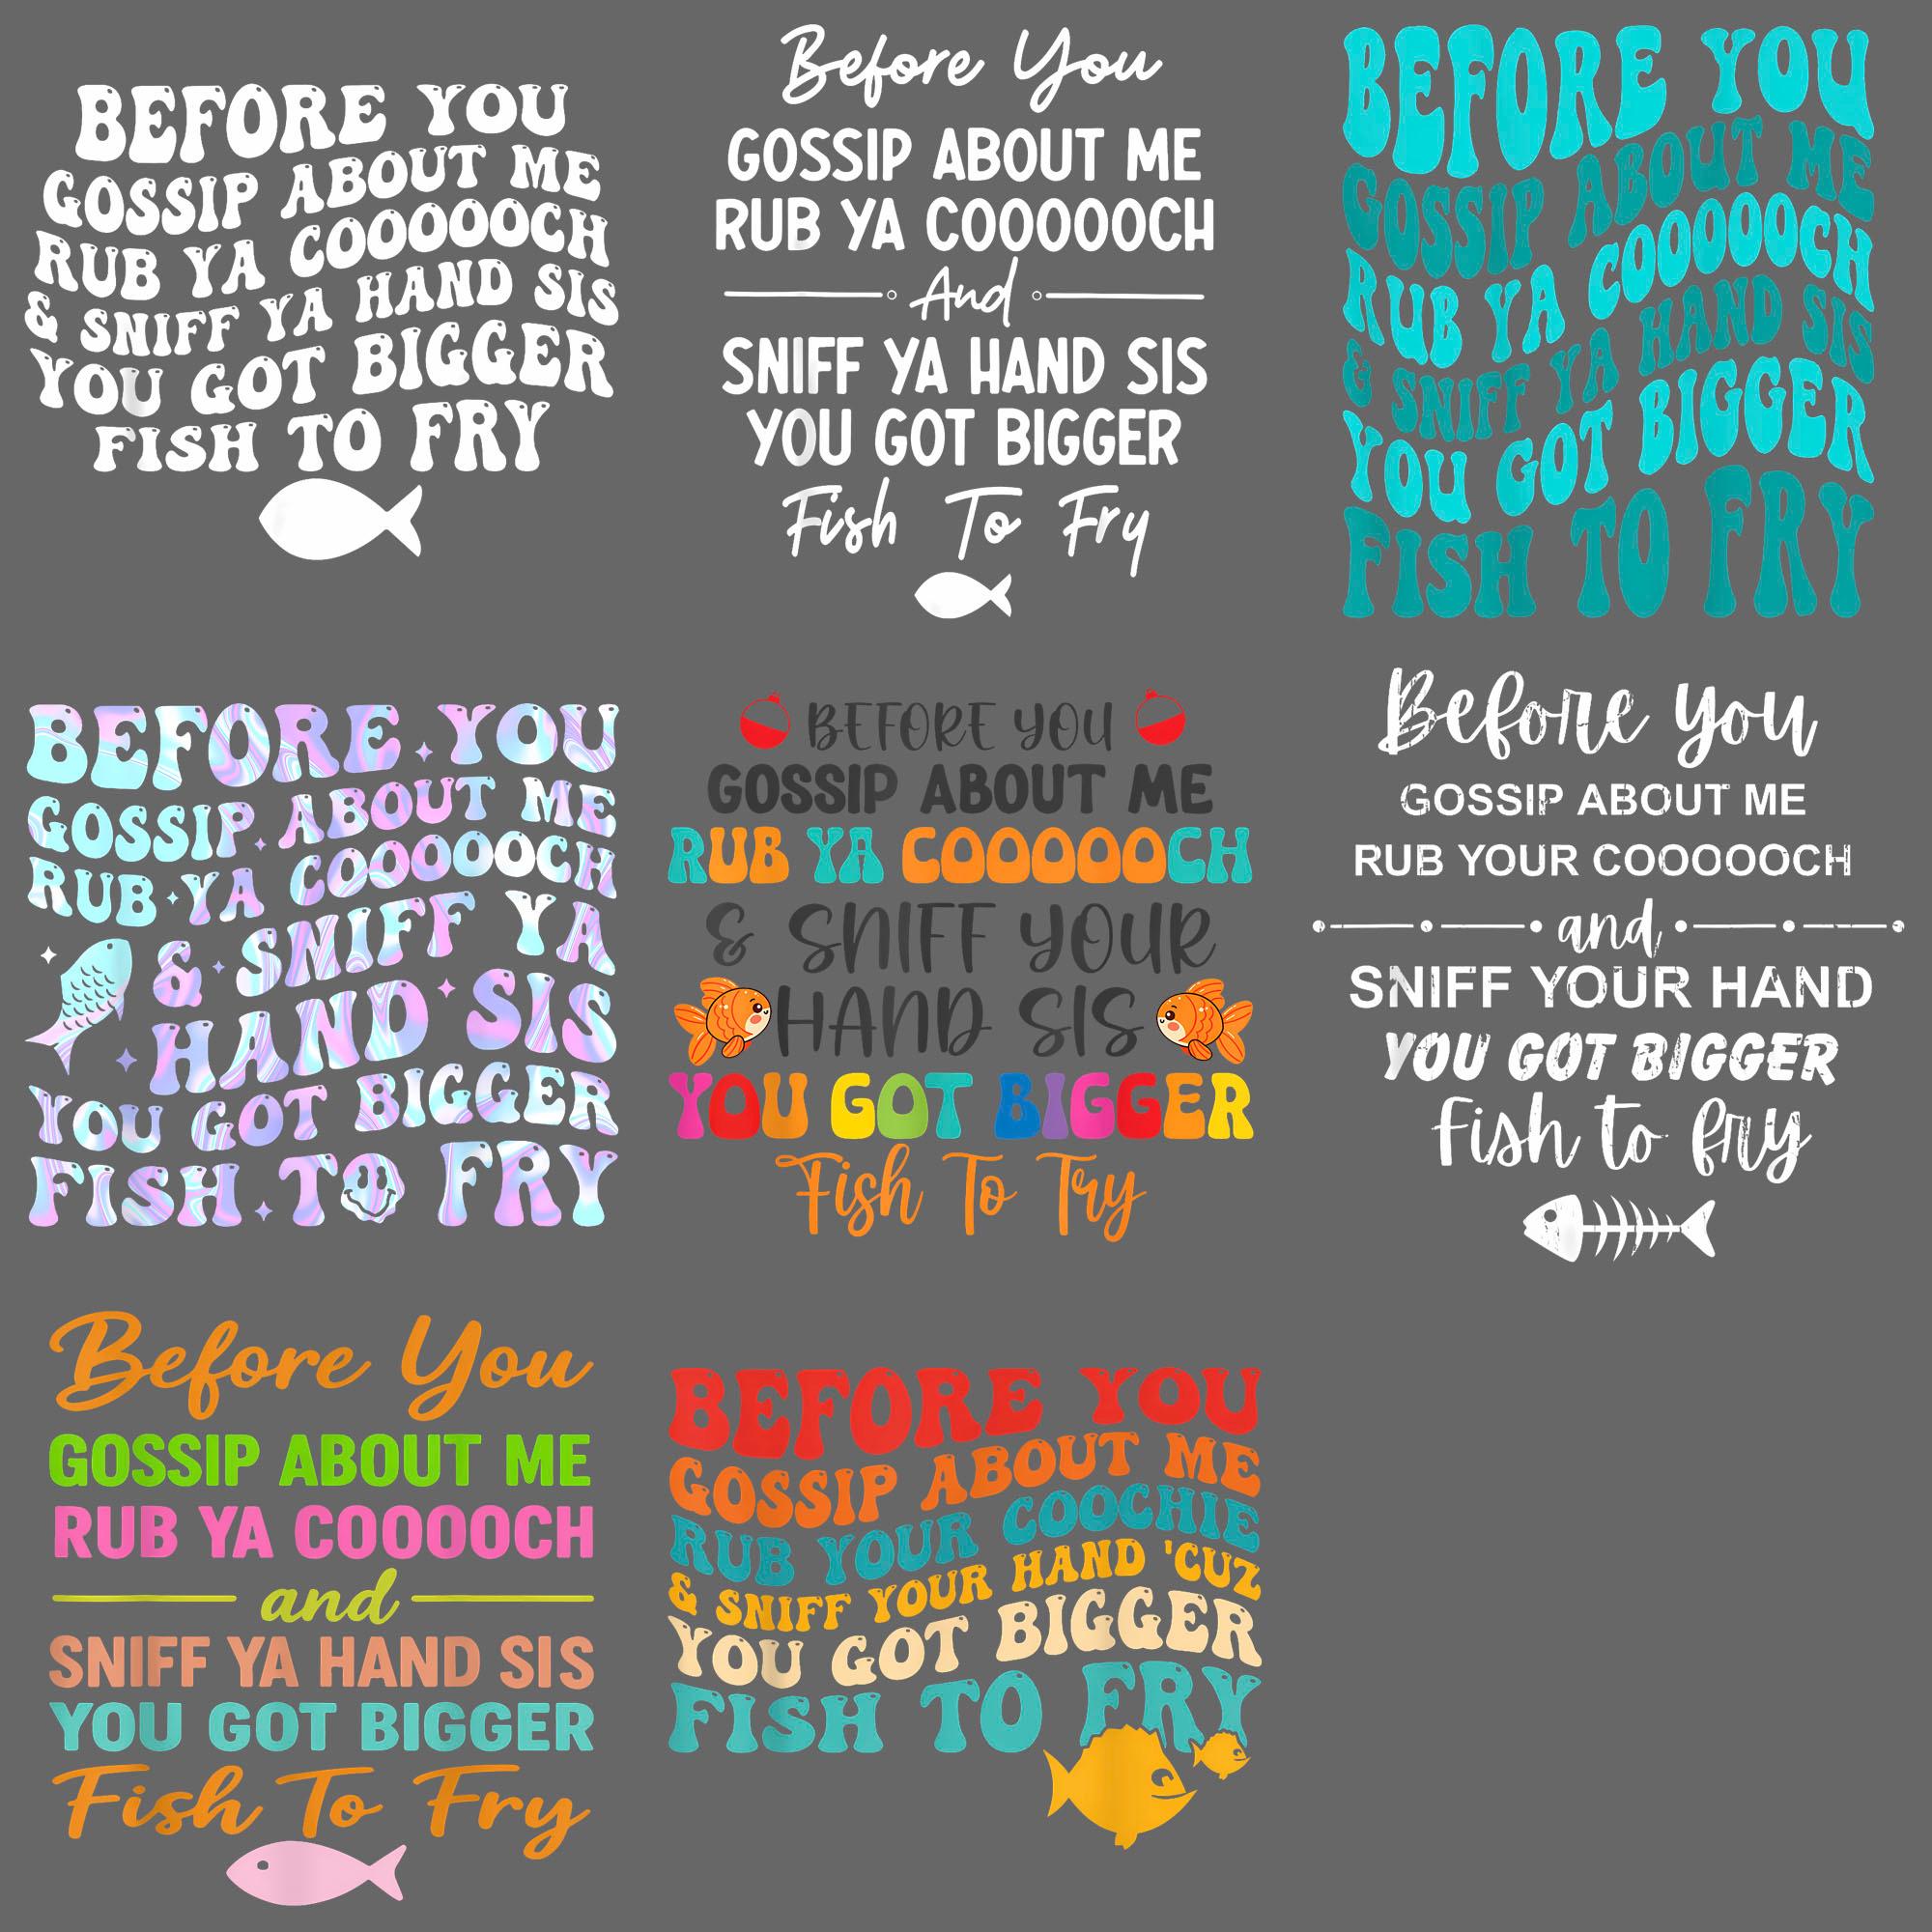 BEFORE YOU
GOSSIP ABOUT ME
RUB YA COOOOOOCH
& SNIFF YA HAND SIS
YOU GOT BIGGER
FISH TO FRY
Before You
GOSSIP ABOUT ME
RUB YA COOOOOOCH
And
SNIFF YA HAND SIS
YOU GOT BIGGER
Fish To Fry
BEFORE YOU
GOSSIP ABOUT ME
RUB YA COOOOOOCH
& SNIFF YA HAND SIS
YOU GOT BIGGER
FISH TO FRY
BEFORE YOU
GOSSIP ABOUT ME
RUB YA COOOOOOCH
& SNIFF YA
HAND SIS
YOU GOT BIGGER
FISH TO FRY
BEFORE YOU
GOSSIP ABOUT ME
RUB YA COOOOOOCH
& SNIFF YOUR
HAND SIS
YOU GOT BIGGER
Fish To Fry
Before you
GOSSIP ABOUT ME
RUB YOUR COOOOOOCH
and
SNIFF YOUR HAND
YOU GOT BIGGER
fish to fry
Before You
GOSSIP ABOUT ME
RUB YA COOOOOCH
and
SNIFF YA HAND SIS
YOU GOT BIGGER
Fish To Fry
BEFORE YOU
GOSSIP ABOUT ME
RUB YOUR COOCHIE
& SNIFF YOUR HAND 'CUZ
YOU GOT BIGGER
FISH TO FRY